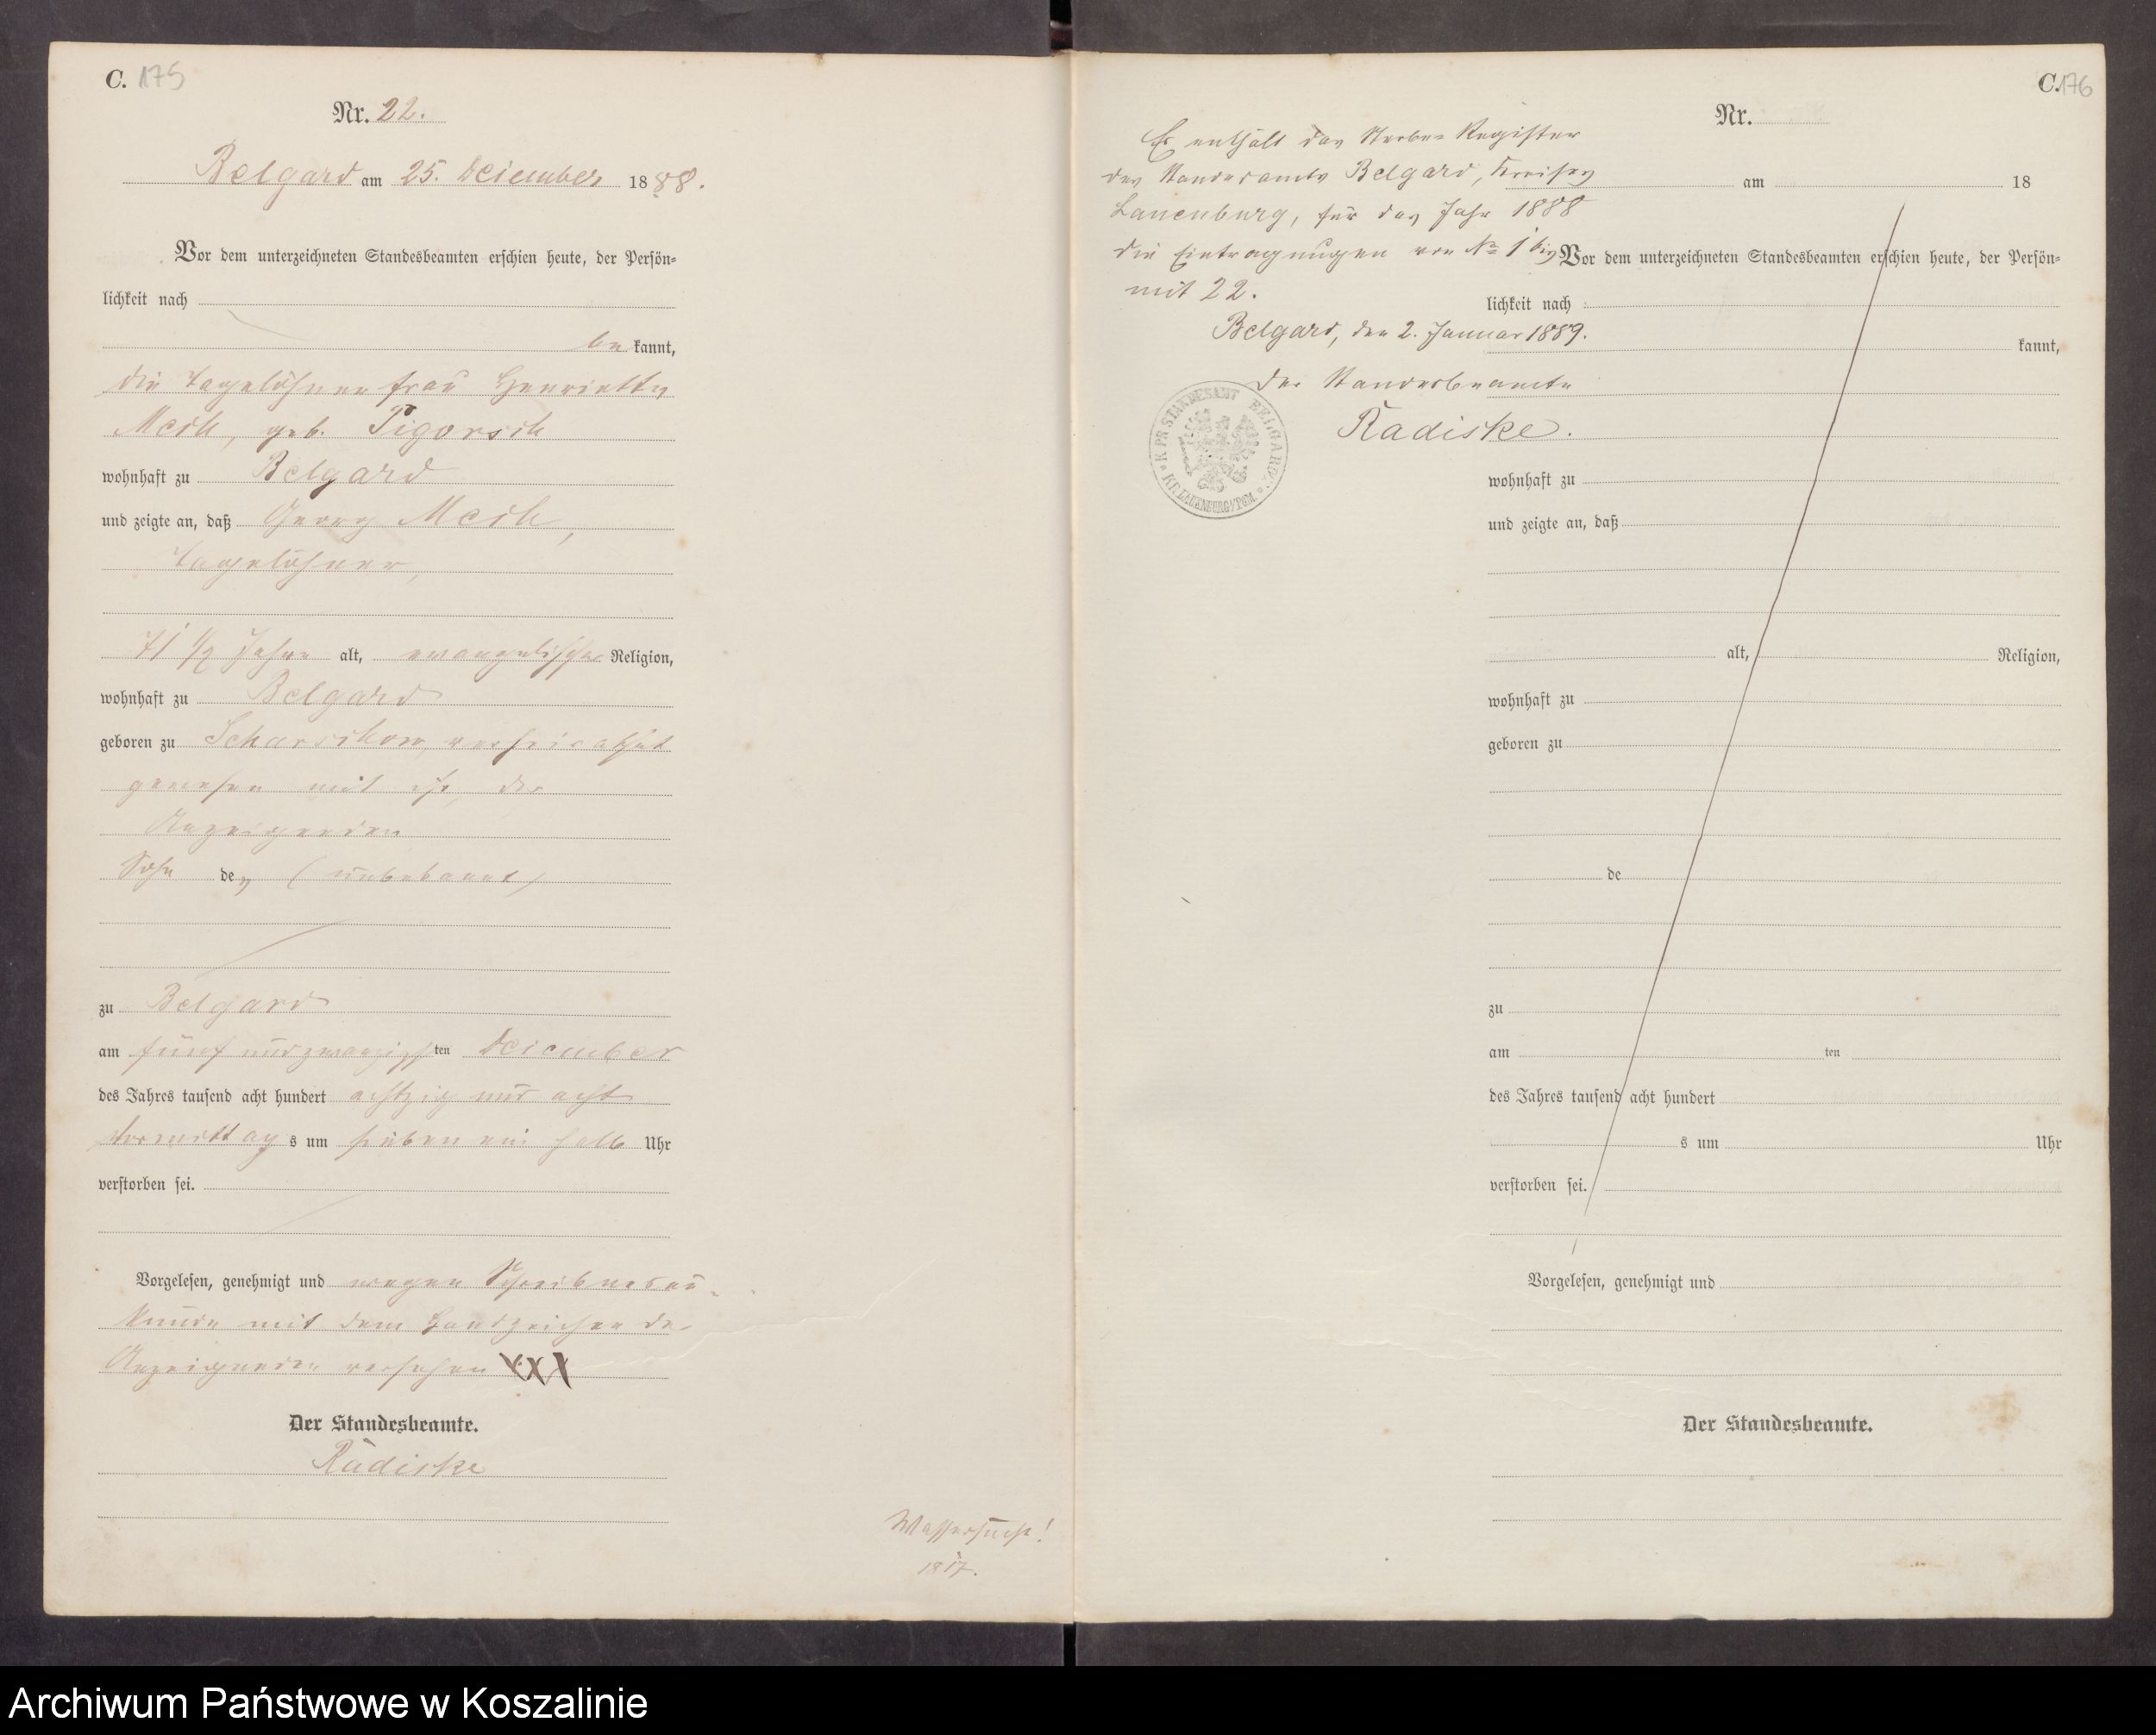 C. 175
Nr. 22.
Belgard am 25. December 1888.
Vor dem unterzeichneten Standesbeamten erschien heute, der Persön-
lichkeit nach
be kannt,
die Tagelöhnerfrau Henriette
geb. Pigorsch
wohnhaft zu Belgard
und zeigte an, daß Georg
Tagelöhner,
71 1/2 Jahre alt, evangelischer Religion,
wohnhaft zu Belgard
geboren zu verheirathet
gewesen mit ihr, der
Anzeigenden
Sohn des (unbekannt)
zu Belgard
am fünf und zwanzigsten December
des Jahres tausend acht hundert achtzig und acht
Vormittags um sieben ein halb Uhr
verstorben sei.
Vorgelesen, genehmigt und wegen Schreibensun-
kunde mit dem Handzeichen der
Anzeigenden versehen XXX
Der Standesbeamte.
Radiske
Wassersucht!
1817.
C. 176
Es enthält das Sterbe-Register
des Standesamts Belgard, Kreises
Lauenburg, für das Jahr 1888
die Eintragungen von No 1 bis
mit 22.
Belgard, den 2. Januar 1889.
Der Standesbeamte
Radiske.
K. PR. STANDESAMT BELGARD
KR. LAUENBURG I/POM.
Nr.
am 18
Vor dem unterzeichneten Standesbeamten erschien heute, der Persön-
lichkeit nach
kannt,
wohnhaft zu
und zeigte an, daß
alt, Religion,
wohnhaft zu
geboren zu
de
zu
am ten
des Jahres tausend acht hundert
s um Uhr
verstorben sei.
Vorgelesen, genehmigt und
Der Standesbeamte.
Archiwum Państwowe w Koszalinie